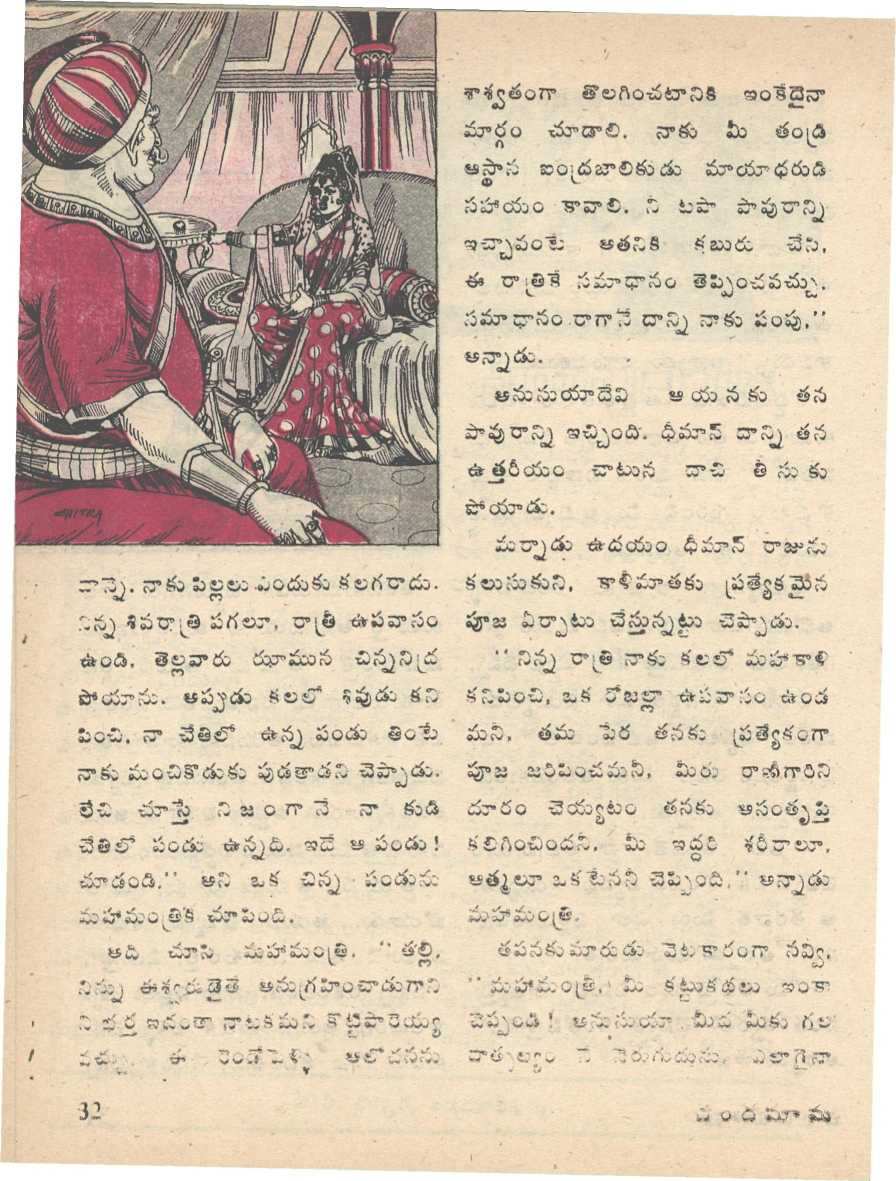 CHITRA
దాన్నై. నాకు పిల్లలు ఎందుకు కలగరాదు.
నిన్న శివరాత్రి పగలూ, రాత్రీ ఉపవాసం
ఉండి, తెల్లవారు ఝామున చిన్ననిద్ర
పోయాను. అప్పుడు కలలో శివుడు కని
పించి, నా చేతిలో ఉన్న పండు తింటే
నాకు మంచికొడుకు పుడతాడని చెప్పాడు.
లేచి చూస్తే నిజంగానే నా కుడి
చేతిలో పండు ఉన్నది. ఇదే ఆ పండు!
చూడండి.'' అని ఒక చిన్న పండును
మహామంత్రికి చూపింది.
అది చూసి మహామంత్రి, ''తల్లీ,
నిన్ను ఈశ్వరుడైతే అనుగ్రహించాడుగాని
నీ భర్త ఇదంతా నాటకమని కొట్టిపారెయ్య
వచ్చు. ఈ రెండోపెళ్ళి ఆలోచనను
శాశ్వతంగా తొలగించటానికి ఇంకేదైనా
మార్గం చూడాలి. నాకు మీ తండ్రి
ఆస్థాన ఐంద్రజాలికుడు మాయాధరుడి
సహాయం కావాలి. నీ టపా పావురాన్ని
ఇచ్చావంటే అతనికి కబురు చేసి,
ఈ రాత్రికే సమాధానం తెప్పించవచ్చు.
సమాధానం రాగానే దాన్ని నాకు పంపు,''
అన్నాడు.
అనుసుయాదేవి ఆయనకు తన
పావురాన్ని ఇచ్చింది. ధీమాన్ దాన్ని తన
ఉత్తరీయం చాటున దాచి తీసుకు
పోయాడు.
మర్నాడు ఉదయం ధీమాన్ రాజును
కలుసుకుని, కాళీమాతకు ప్రత్యేకమైన
పూజ ఏర్పాటు చేస్తున్నట్టు చెప్పాడు.
''నిన్న రాత్రి నాకు కలలో మహాకాళి
కనిపించి, ఒక రోజల్లా ఉపవాసం ఉండ
మని, తమ పేర తనకు ప్రత్యేకంగా
పూజ జరిపించమనీ, మీరు రాణీగారిని
దూరం చెయ్యటం తనకు అసంతృప్తి
కలిగించిందనీ, మీ ఇద్దరి శరీరాలూ,
ఆత్మలూ ఒకటేననీ చెప్పింది,'' అన్నాడు
మహామంత్రి.
తపనకుమారుడు వెటకారంగా నవ్వి,
''మహామంత్రీ, మీ కట్టుకథలు ఇంకా
చెప్పండి! అనుసుయా మీద మీకు గల
వాత్సల్యం నే నెరుగుదును. ఎలాగైనా
32
చందమామ